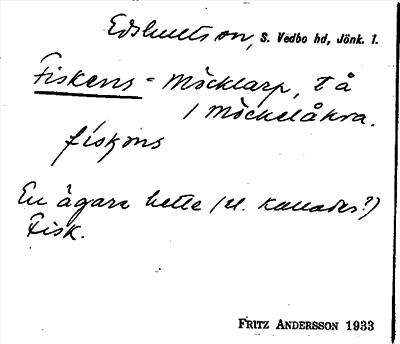 Edshultson, S. Vedbo hd, Jönk. l.
Fiskens = Möcklarp, t å
/ Möckelåkra.
fiskɷns
En ägare hette (el. kallades?)
Fisk.
FRITZ ANDERSSON 1933